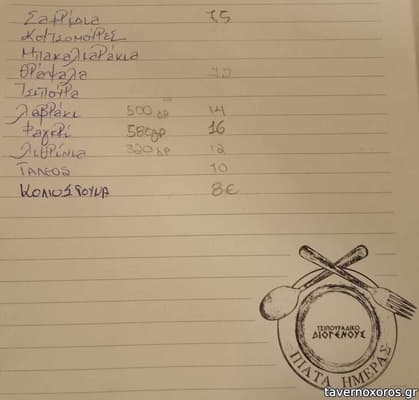 Σαφρίδια 7,5
Κουτσομούρες
Μπακαλιαράκια
Θράψαλα
Τσιπούρα
Λαβράκι 500 γρ 14
Φαγκρί 580γρ 16
Λιθρίνια 320γρ 12
Γαλέος 10
8€
ΤΣΙΠΟΥΡΑΔΙΚΟ
ΔΙΟΓΕΝΟΥΣ
ΠΙΑΤΑ ΗΜΕΡΑΣ
tavernoxoros.gr